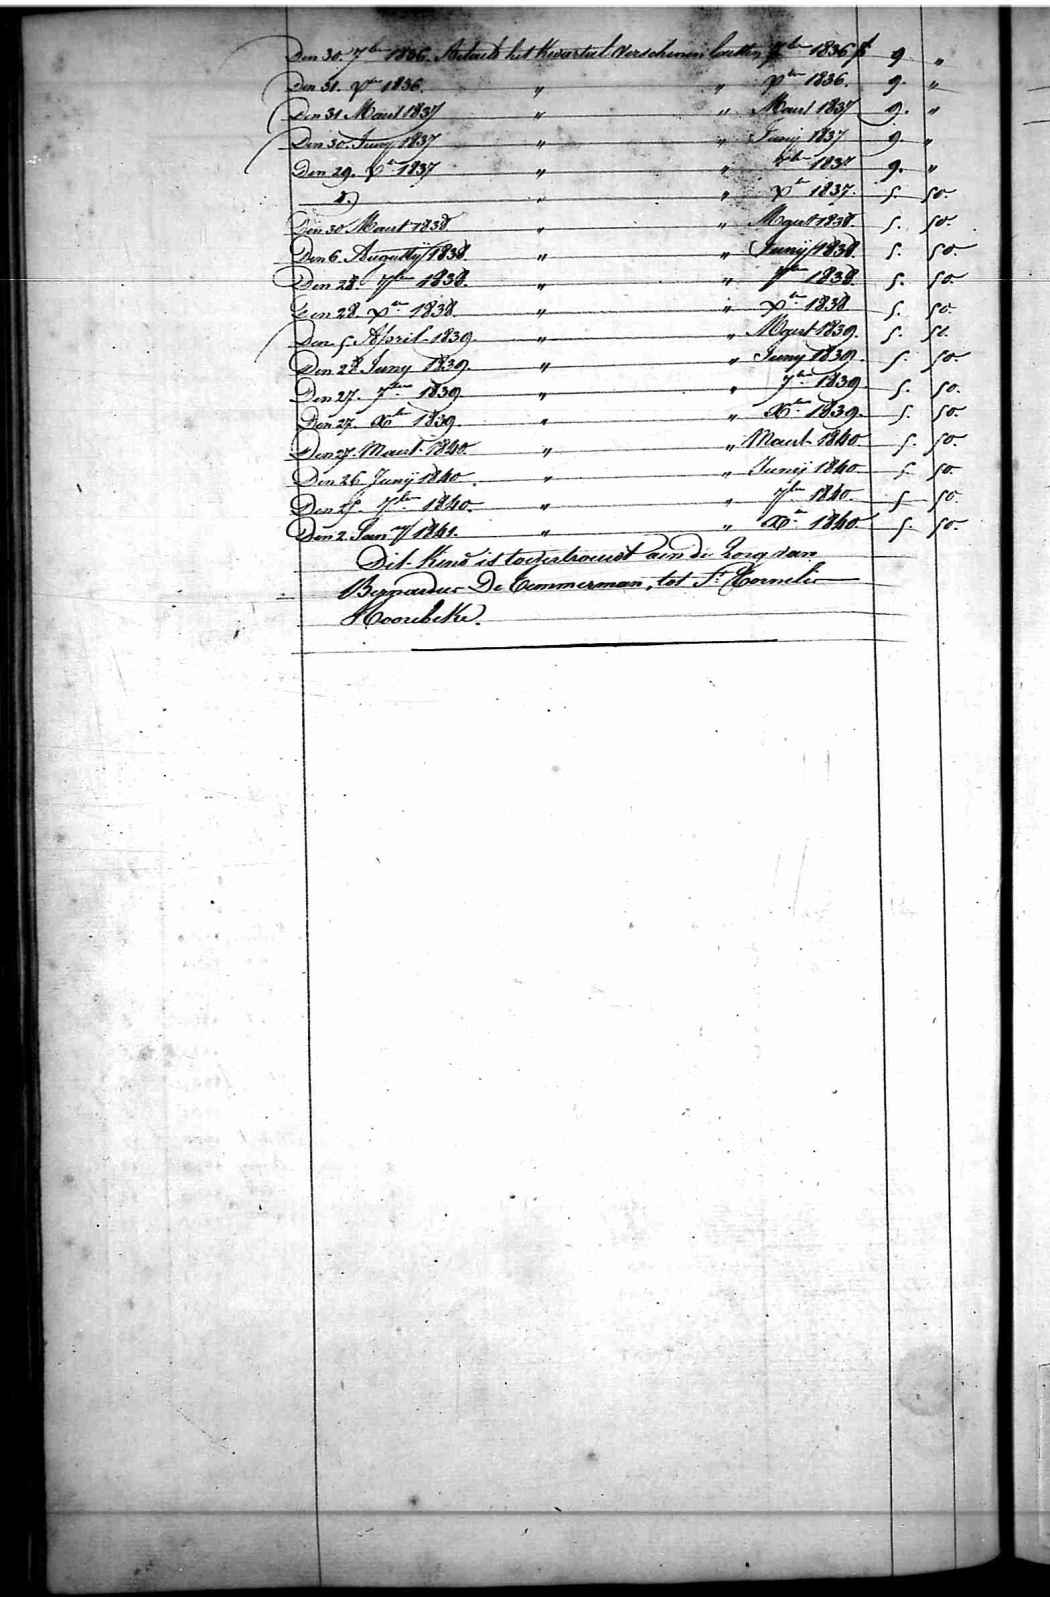 Den 30. 7ber 1836. Betaelt het Kwartael Verschenen laetsten 7ber 1836 f 9. "
Den 31. Xber 1836. " " Xber 1836. 9. "
Den 31 Maert 1837 " " Maert 1837 9. "
Den 30. Junij 1837 " " Junij 1837 9. "
Den 29. Xber 1837 " " 7ber 1837 9. "
d.o " " Xber 1837. 5. 50.
Den 30 Maert 1838 " " Maert 1838. 5. 50.
Den 6. Augustij 1838. " " Junij 1838. 5. 50.
Den 28. 7ber 1838. " " 7ber 1838. 5. 50.
Den 28. Xber 1838. " " Xber 1838 5. 50.
Den 5 April 1839. " " Maert 1839. 5. 50.
Den 28 Juny 1839. " " Juny 1839. 5. 50.
Den 27. 7ber 1839. " " 7ber 1839. 5. 50.
Den 27. Xber 1839. " " Xber 1839. 5. 50.
Den 27. Maert 1840. " " Maert 1840. 5. 50.
Den 26 Junij 1840. " " Junij 1840 5. 50.
Den 25 7ber 1840. " " 7ber 1840. 5 50.
Den 2. Jan.ry 1841. " " Xber 1840. 5. 50.
Dit Kind is toevertrouwt aen de Zorg van
Bernardus De Temmerman, tot St. Cornelis
Hoorebeke.